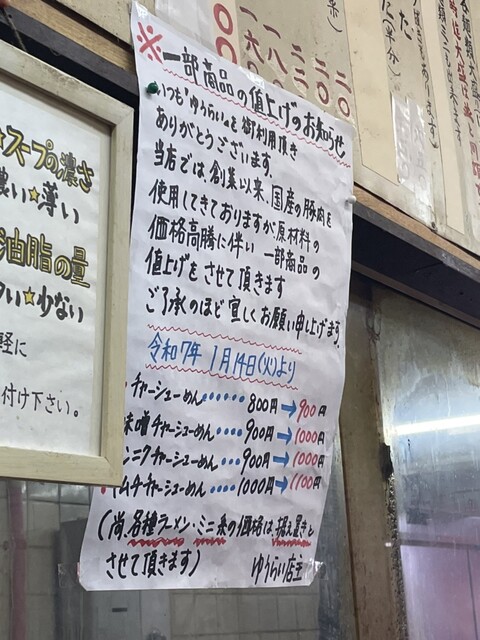 ※一部商品の値上げのお知らせ
いつも『ゆうらい』を御利用頂き
ありがとうございます。
当店では創業以来、国産の豚肉を
使用してきておりますが原材料の
価格高騰に伴い 一部商品の
値上げをさせて頂きます
ご了承のほど宜しくお願い申し上げます。
令和7年 1月14日(火)より
チャーシューめん……800円→900円
味噌チャーシューめん…900円→1000円
ンニクチャーシューめん…900円→1000円
ムチチャーシューめん…1000円→1100円
(尚、各種ラーメン・ミニ丼の価格は、据え置きと
させて頂きます)
ゆうらい店主
スープの濃さ
濃い★薄い
油脂の量
多い★少ない
軽に
付け下さい。